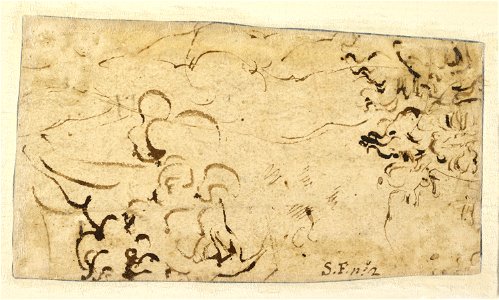 S.F. nº2